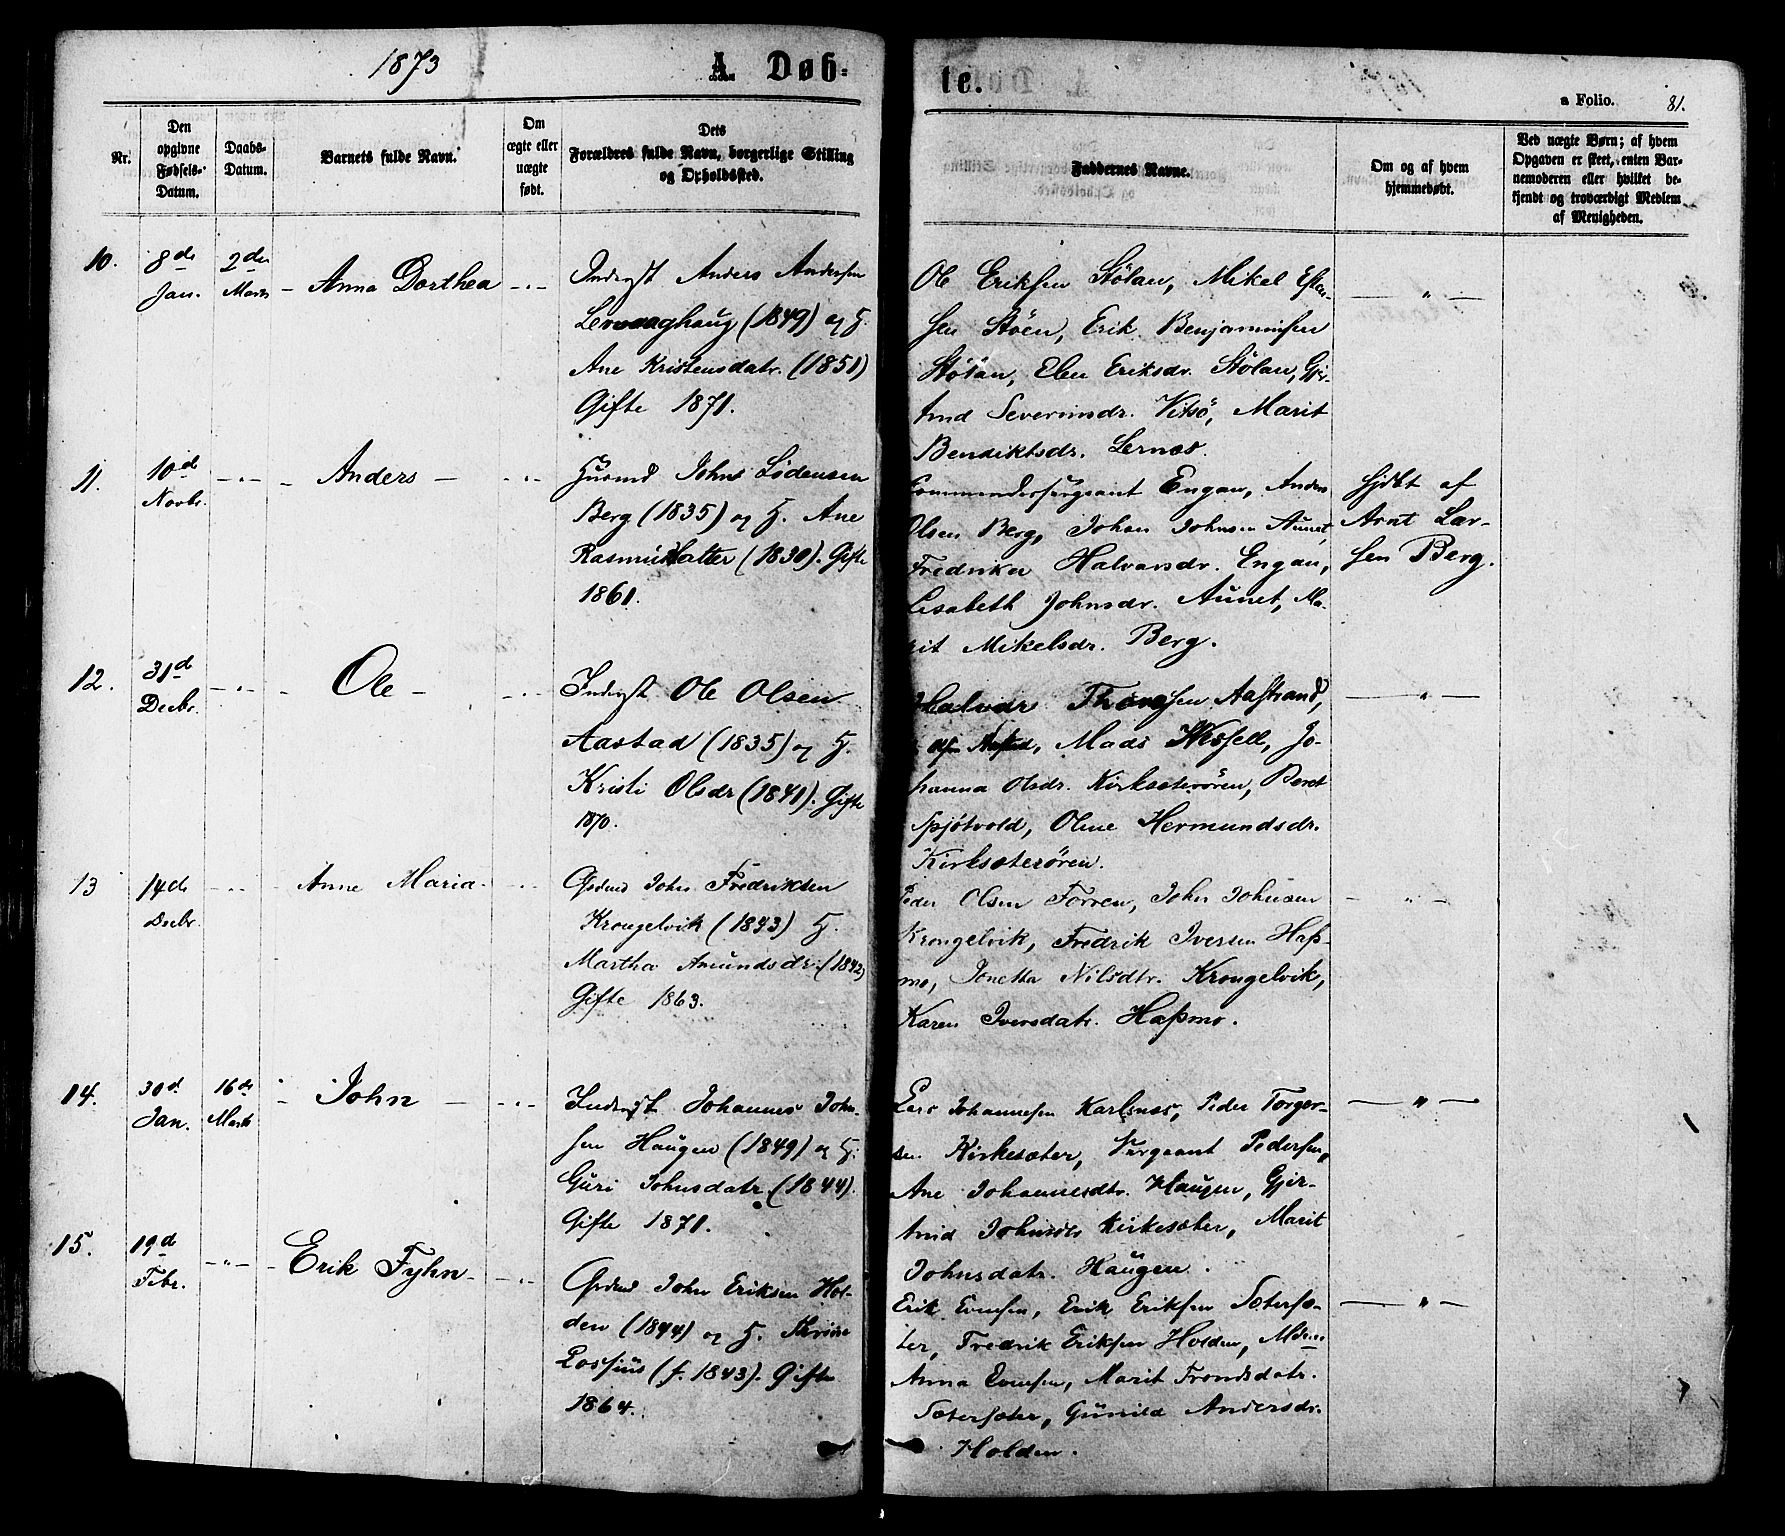 1873
A Døb-
te.
a Folio.
81.
Nr.
Den
opgivne
Fødsels-
Datum.
Daabs-
Datum.
Barnets fulde Navn.
Om
ægte eller
uægte
født.
Dets
Forældres fulde Navn, borgerlige Stilling
og Opholdssted.
Faddernes Navne.
Om og af hvem
hjemmedøbt.
Ved uægte Børn; af hvem
Opgaven er skeet, enten Bar-
nemoderen eller hvilket be-
kjendt og troværdigt Medlem
af Menigheden.
10.
8de
Jan.
2den
Marts
Anna Dorthea
Inderst Anders Andersen
(1849) og H.
Ane Kristensdatr. (1851)
Gifte 1871.
Ole Eriksen Stölan, Mikel Esten-
sen Stöen, Erik Benjaminsen
Stölan, Elen Eriksdr. Stölan, Gjer-
trud Severinsdr. Vitsö, Marit
Bendiktsdr. Lernæs.
11.
10d
Novbr.
Anders
Husmd John Lödensen
Berg (1835) og H. Ane
Rasmusdatter (1830). Gifte
1861.
Commandersergeant Engan, Anders
Olsen Berg, Johan Johnsen Aunet,
Fredrika Halvorsdr. Engan,
Lisabeth Johnsdr. Aunet, Ma-
rit Mikelsdr. Berg.
Hjdbt af
Arnt Lar-
sen Berg.
12.
31d
Decbr.
Ole
Inderst Ole Olsen
Aastad (1835) og H.
Kristi Olsdr (1841). Gifte
1870.
Halvdr Aastrand,
Mads Wessell, Jo-
hanna Olsdr. Kirksæterören, Beret
Spjötvold, Oline Hermundsdr.
Kirksæterören.
13
14de
Decbr.
Anne Maria
Grdmd John Fredriksen
Krongelvik (1843) H.
Martha Amundsdr. (1842)
Gifte 1863.
Peder Olsen Forren, John Johnsen
Krongelvik, Fredrik Iversen Hass-
mo, Jonetta Nilsdtr. Krongelvik,
Karen Iversdatr. Hassmo.
14.
30d
Jan.
16de
Marts
John
Inderst Johannes John-
sen Haugen (1849) og H.
Guri Johnsdatr. (1844).
Gifte 1871.
Lars Johannesen Karlsnes, Peder Torger-
sen Kirkesæter, Sergeant Pedersen,
Ane Johannesdtr. Haugen, Gjer-
trud Johnsdtr Kirkesæter, Marit
Johnsdatr. Haugen.
15.
19d
Febr.
Erik Fyhn
Grdmd John Eriksen Hol-
den (1844) og H.
Lossius (f. 1843). Gifte
1864.
Erik Evensen, Erik Eriksen Sætersæ-
ter, Fredrik Eriksen Holden,
Anna Evensen, Marit Trondsdatr.
Sætersæter, Gunild Andersdr.
Holden.